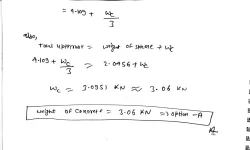 = 4.109 + Wc/3
also,
Total upthrust = weight of sphere + Wc
4.109 + Wc/3 = 2.0556 + Wc
Wc = 3.0551 KN ≈ 3.06 KN
weight of concrete = 3.06 KN => option - A